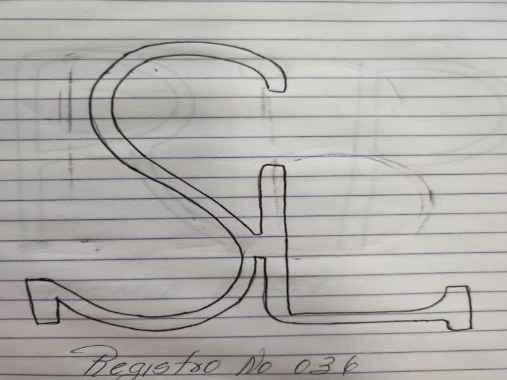 SL
Registro No 036